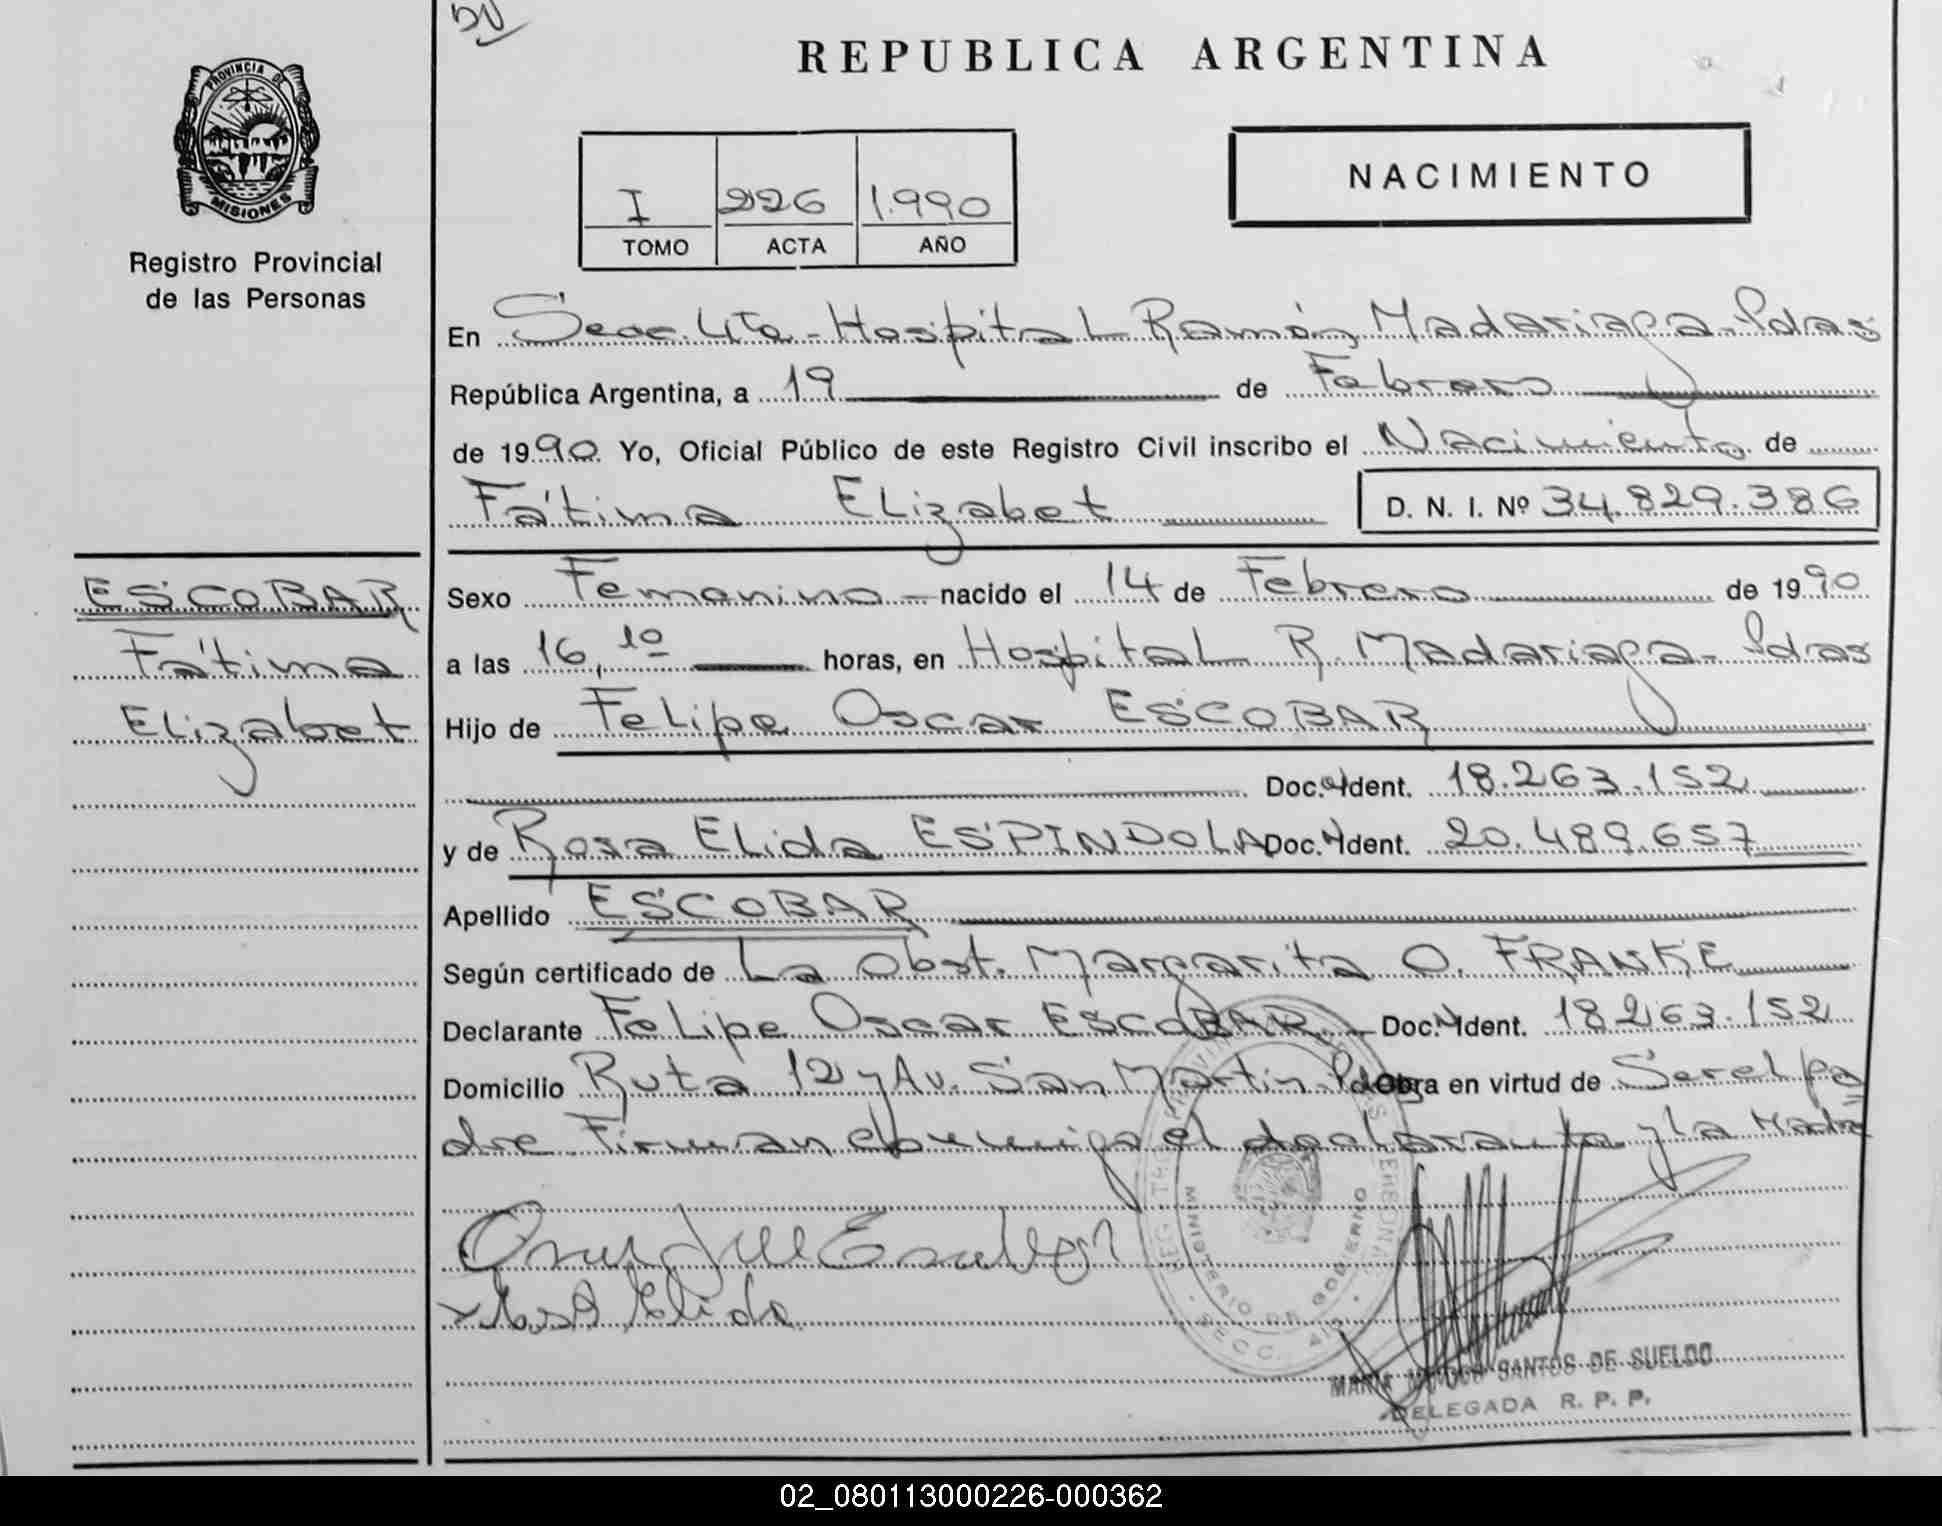 DV
REPUBLICA ARGENTINA
PROVINCIA DE
MISIONES
Registro Provincial
de las Personas
I 226 1.990
TOMO ACTA AÑO
NACIMIENTO
En Secc. 4ta - Hospital Ramón Madariaga - Pdas
República Argentina, a 19 de Febrero
de 1990 Yo, Oficial Público de este Registro Civil inscribo el Nacimiento de
Fátima Elizabet D. N. I. Nº 34.829.386
ESCOBAR
Fátima
Elizabet
Sexo Femenino - nacido el 14 de Febrero de 1990
a las 16,10 horas, en Hospital R. Madariaga - Pdas
Hijo de Felipe Oscar ESCOBAR
Doc. Ident. 18.263.152
y de Rosa Elida ESPINDOLA Doc. Ident. 20.489.657
Apellido ESCOBAR
Según certificado de La Obst. Margarita O. FRANKE
Declarante Felipe Oscar ESCOBAR - Doc. Ident. 18.263.152
Domicilio Ruta 12 y Av. San Martin - Pdas Obra en virtud de Ser el pa
dre Firman conmigo el declarante y La Madre
Rosa Elida
MINISTERIO DE GOBIERNO
SECC. 4ta
MARIA SANTOS DE SUELDO
DELEGADA R. P. P.
02_080113000226-000362